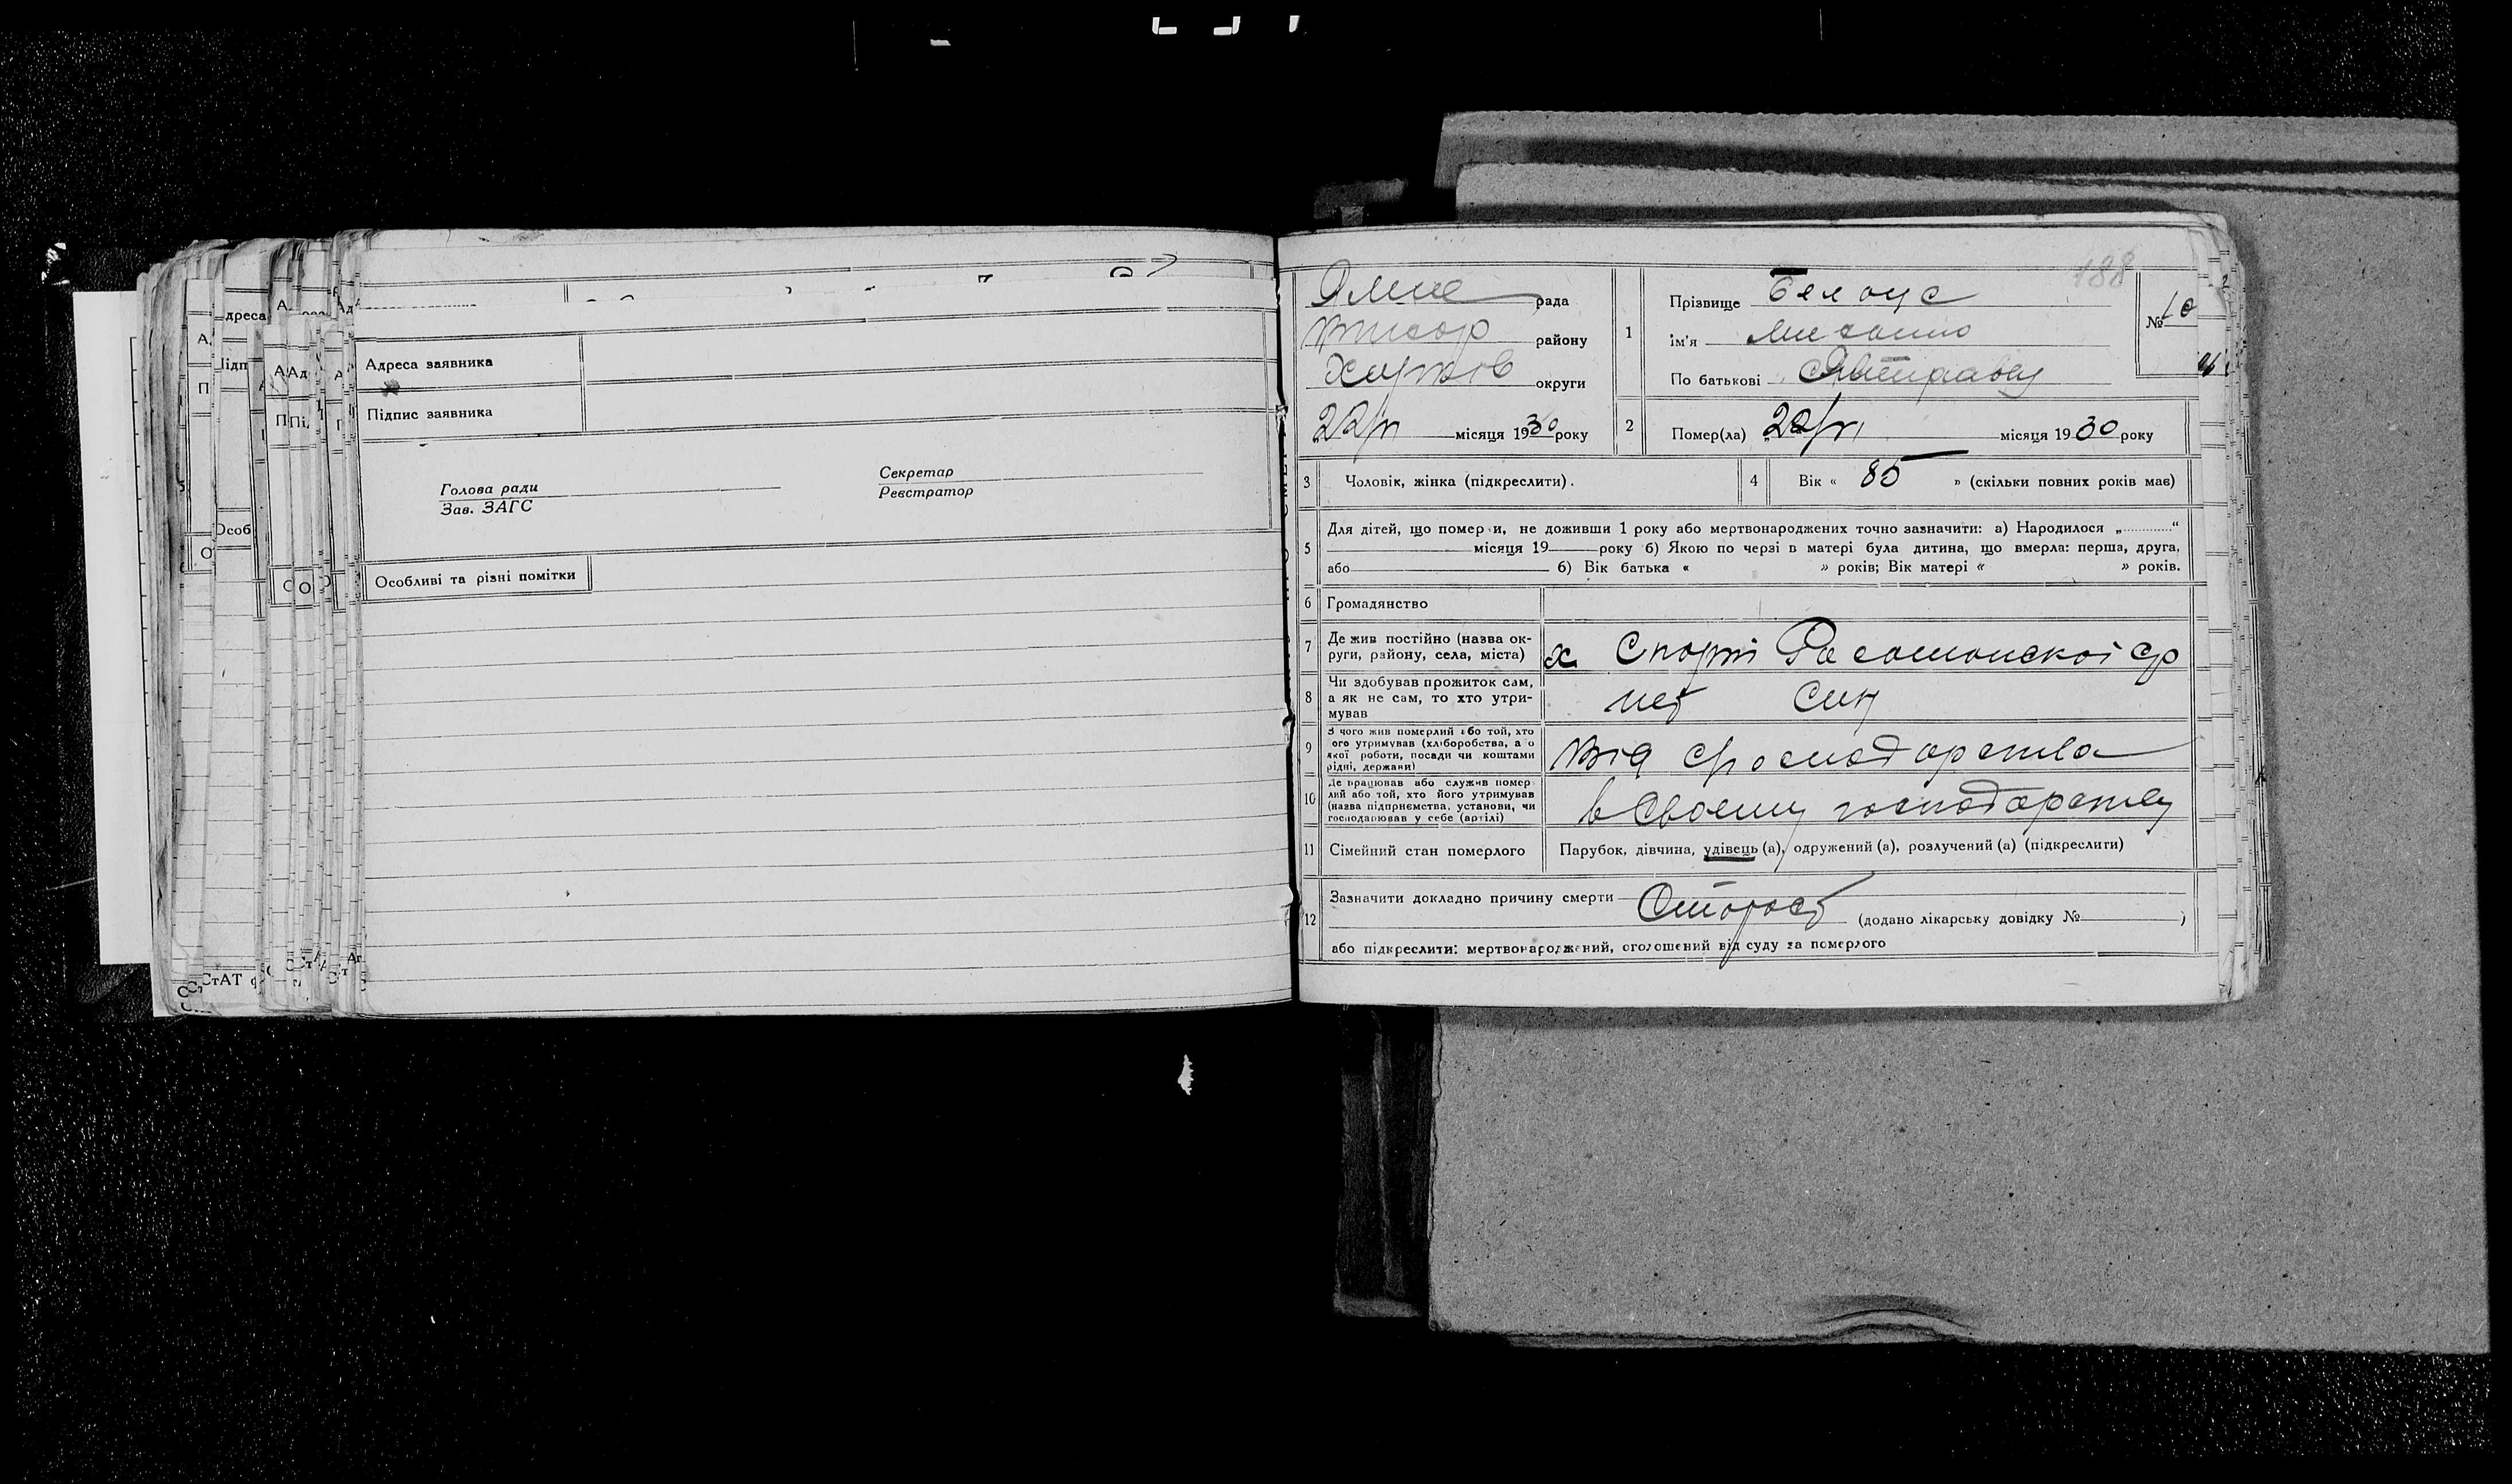 Адреса заявника
Підпис заявника
Голова ради
Зав. ЗАГС
Секретар
Реєстратор
Особливі та різні помітки
СтАТ
188
рада
району
Харків округи
22/VI місяця 1930 року
1
Прізвище Белоус
ім'я Михаило
По батькові
№ 10
2
Помер(ла) 22/VI місяця 1930 року
3 Чоловік, жінка (підкреслити).
4 Вік « 85 » (скільки повних років має)
5 Для дітей, що померли, не доживши 1 року або мертвонароджених точно зазначити: а) Народилося „..........“
місяця 19 року б) Якою по черзі в матері була дитина, що вмерла: перша, друга,
або б) Вік батька « » років; Вік матері « » років.
6 Громадянство
7 Де жив постійно (назва ок-
руги, району, села, міста) х
8 Чи здобував прожиток сам,
а як не сам, то хто утри-
мував
нет син
9 З чого жив померлий або той, хто
ого утримував (хліборобства, а о
якої роботи, посади чи коштами
рідні, держави)
від господарства
10 Де працював або служив помер
лий або той, хто його утримував
(назва підприємства, установи, чи
господарював у себе (артілі)
в своему господарству
11 Сімейний стан померлого Парубок, дівчина, удівець (а), одружений (а), розлучений (а) (підкреслити)
12 Зазначити докладно причину смерти
(додано лікарську довідку № )
або підкреслити: мертвонароджений, оголошений від суду за померлого